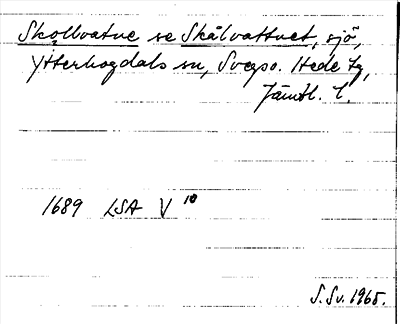 Skollvatne se Skålvattnet, sjö,
Ytterhogdals sn, Svegso. Hede tg,
Jämtl. l.
1689 LSA V 10
S. Sv. 1965.